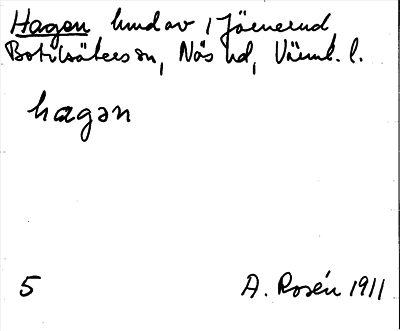 Hagen hmd av 1 Järnerud
Botilsäters sn, Näs hd, Värml. l.
hagən
5 A. Rosén 1911